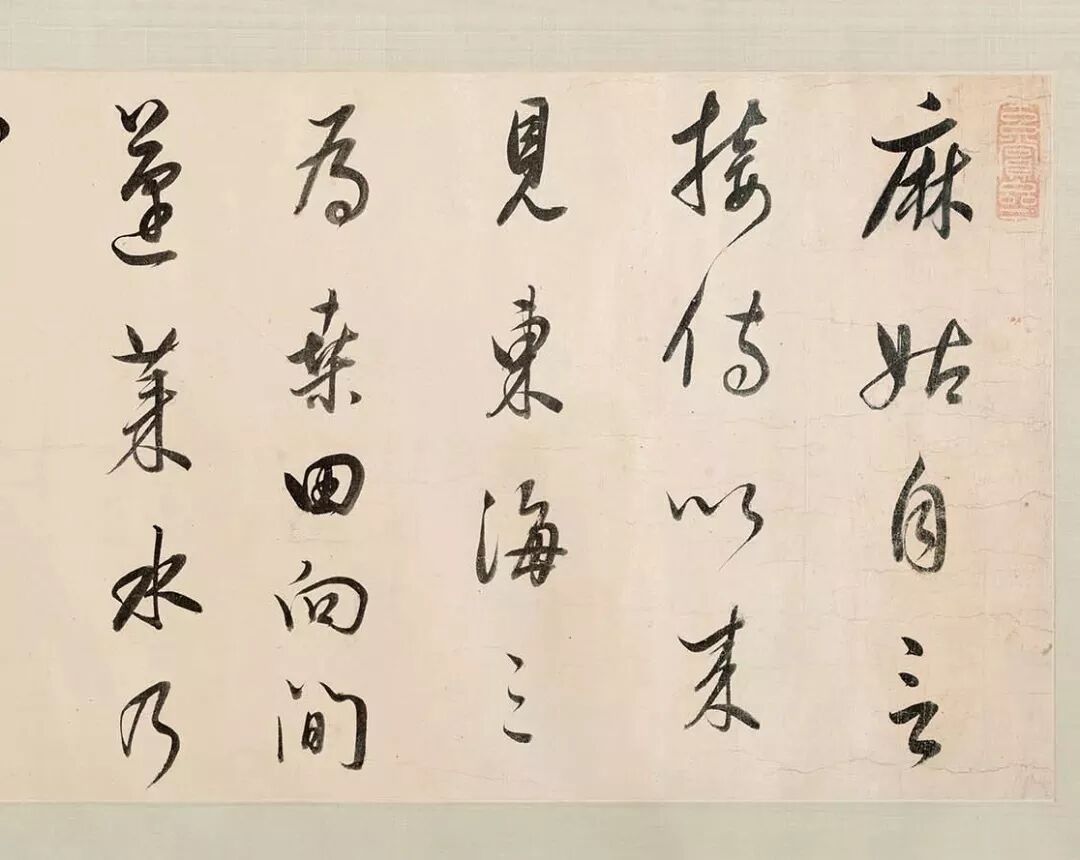 麻姑自言
接侍以来
見東海三
為桑田向間
蓬莱水乃